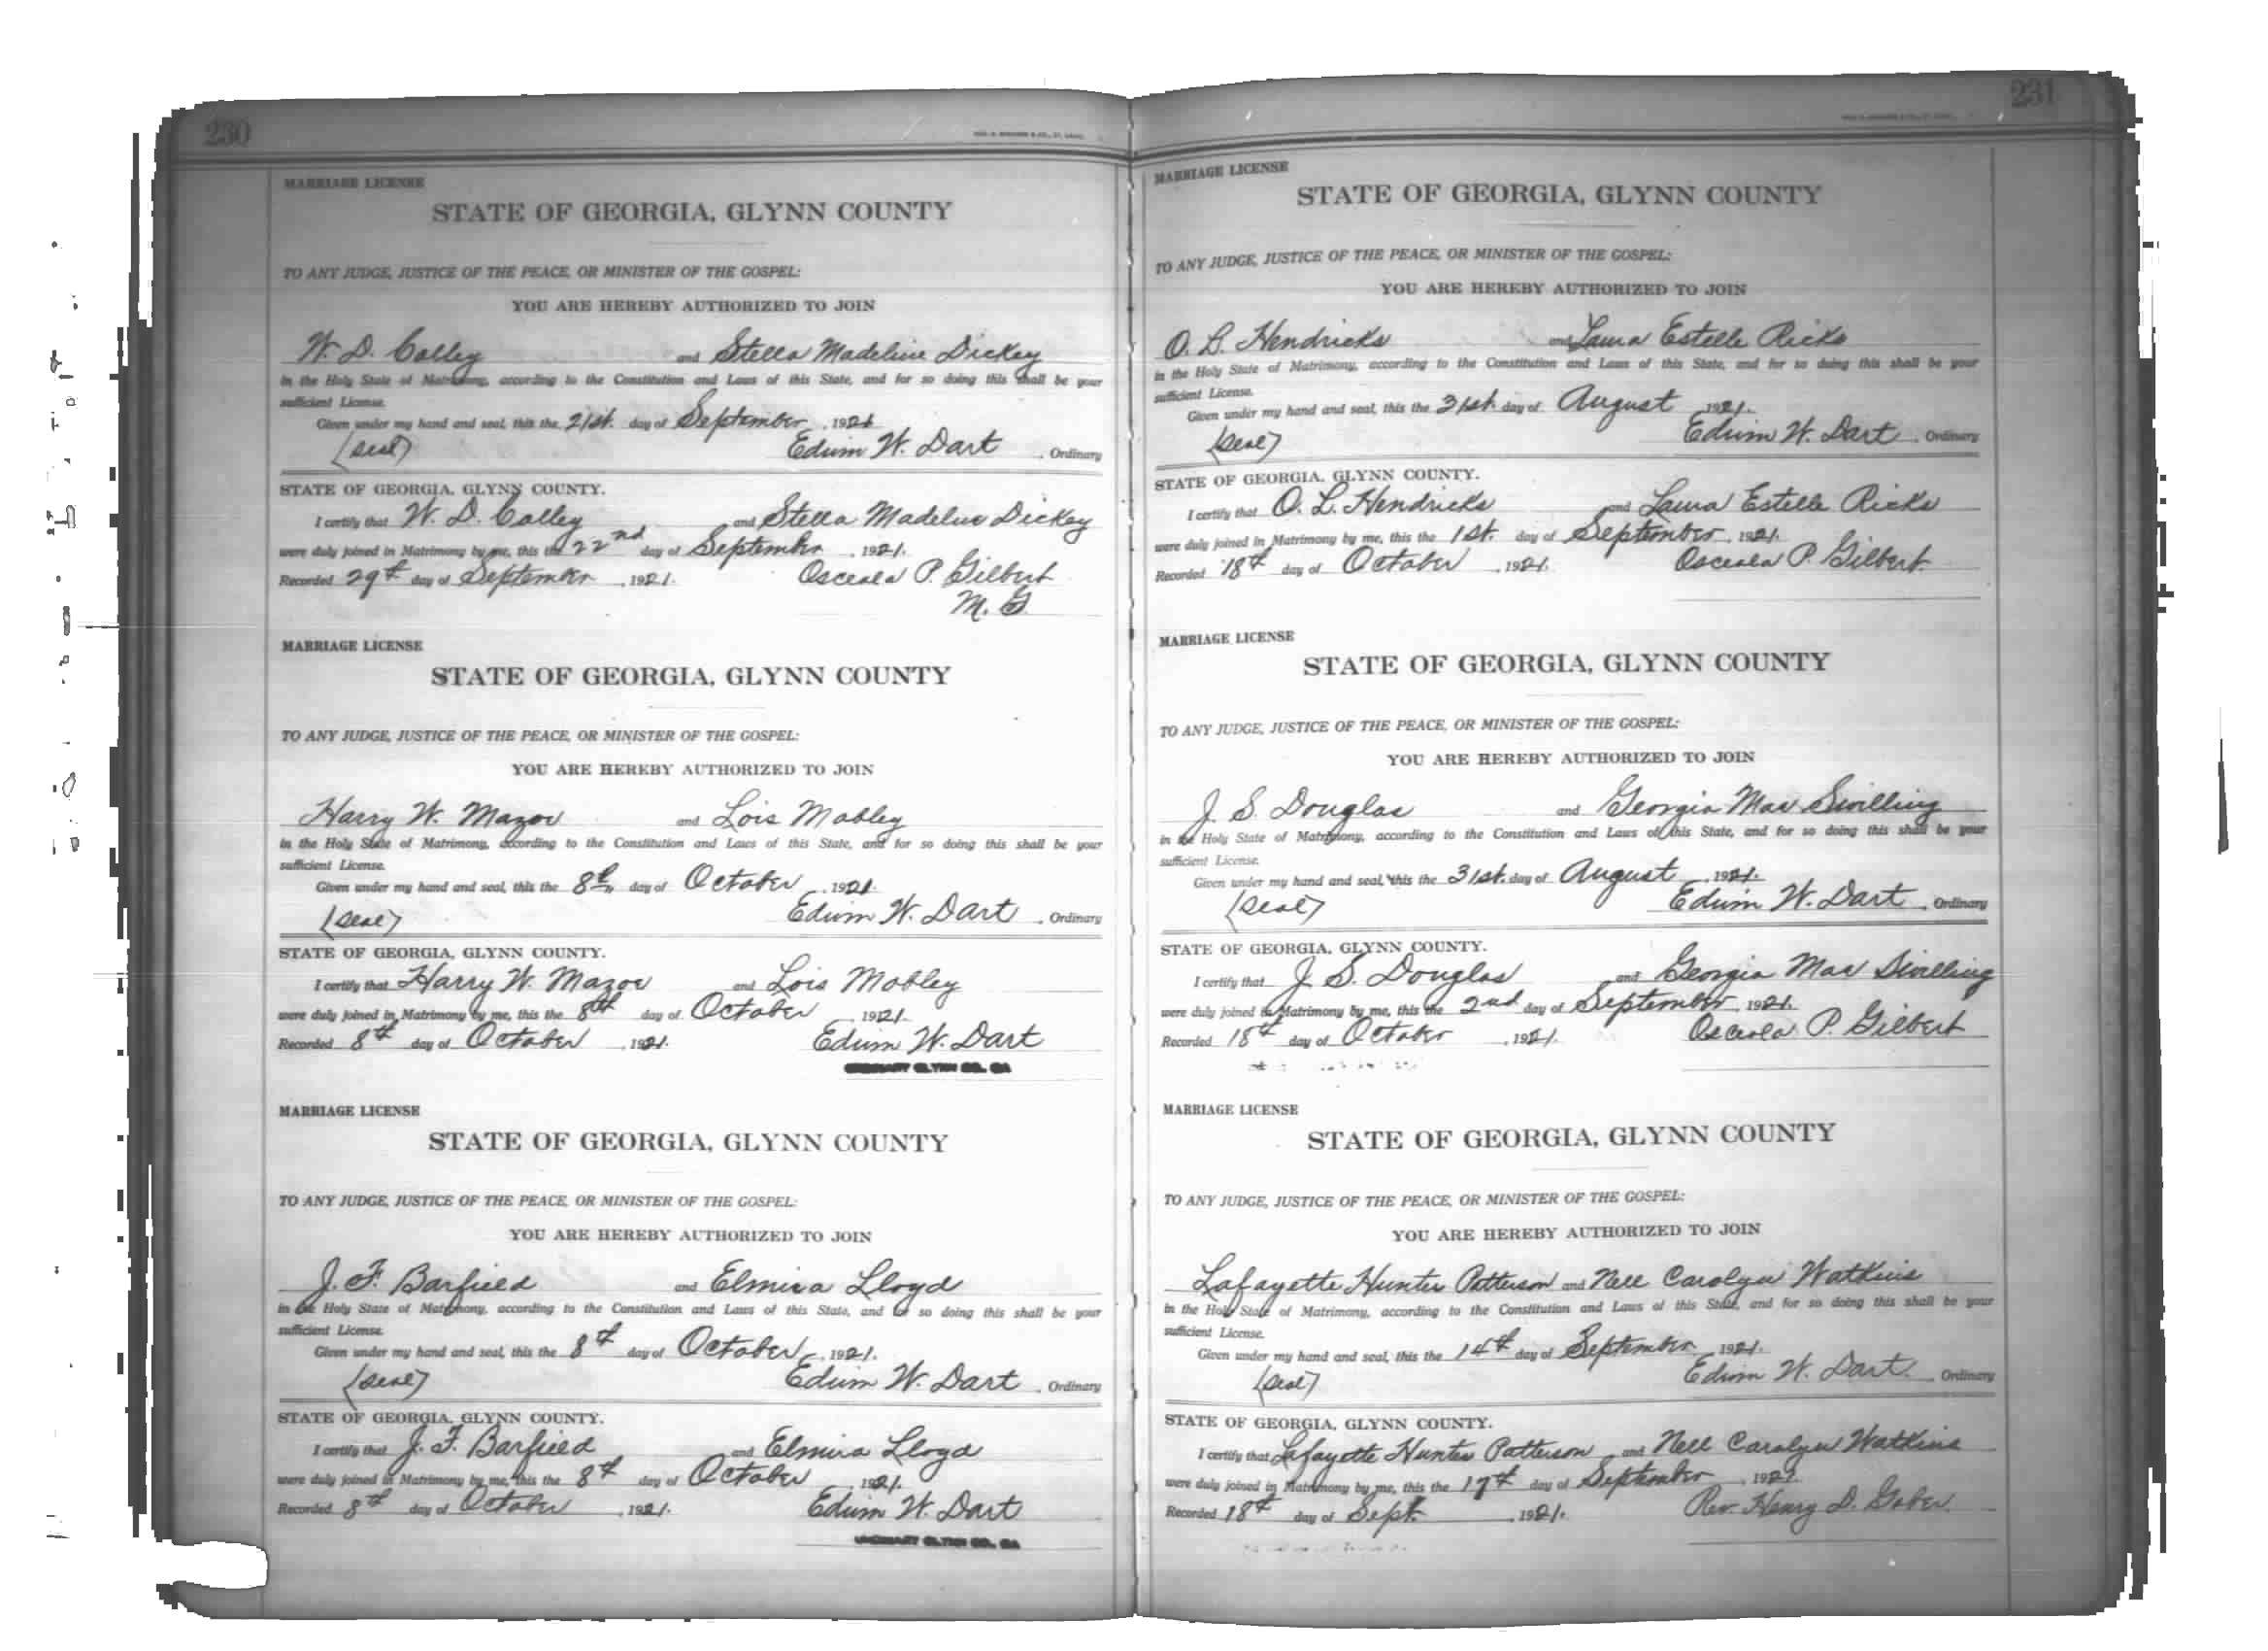 230
MARRIAGE LICENSE
STATE OF GEORGIA, GLYNN COUNTY
TO ANY JUDGE, JUSTICE OF THE PEACE, OR MINISTER OF THE GOSPEL:
YOU ARE HEREBY AUTHORIZED TO JOIN
W. D. Colley and Stella Madeline Dickey
in the Holy State of Matrimony, according to the Constitution and Laws of this State, and for so doing this shall be your
sufficient License.
Given under my hand and seal, this the 21st. day of September, 1921
(Seal) Edwin W. Dart, Ordinary
STATE OF GEORGIA, GLYNN COUNTY.
I certify that W. D. Colley and Stella Madeline Dickey
were duly joined in Matrimony by me, this the 22nd day of September, 1921.
Recorded 29th day of September, 1921. Osceola P. Gilbert
M. G.
MARRIAGE LICENSE
STATE OF GEORGIA, GLYNN COUNTY
TO ANY JUDGE, JUSTICE OF THE PEACE, OR MINISTER OF THE GOSPEL:
YOU ARE HEREBY AUTHORIZED TO JOIN
Harry W. Mazoe and Lois Mobley
in the Holy State of Matrimony, according to the Constitution and Laws of this State, and for so doing this shall be your
sufficient License.
Given under my hand and seal, this the 8th day of October, 1921.
(Seal) Edwin W. Dart, Ordinary
STATE OF GEORGIA, GLYNN COUNTY.
I certify that Harry W. Mazoe and Lois Mobley
were duly joined in Matrimony by me, this the 8th day of October, 1921.
Recorded 8th day of October, 1921. Edwin W. Dart
ORDINARY GLYNN CO. GA
MARRIAGE LICENSE
STATE OF GEORGIA, GLYNN COUNTY
TO ANY JUDGE, JUSTICE OF THE PEACE, OR MINISTER OF THE GOSPEL:
YOU ARE HEREBY AUTHORIZED TO JOIN
J. F. Barfield and Elmira Lloyd
in the Holy State of Matrimony, according to the Constitution and Laws of this State, and for so doing this shall be your
sufficient License.
Given under my hand and seal, this the 8th day of October, 1921.
(Seal) Edwin W. Dart, Ordinary
STATE OF GEORGIA, GLYNN COUNTY.
I certify that J. F. Barfield and Elmira Lloyd
were duly joined in Matrimony by me, this the 8th day of October, 1921.
Recorded 8th day of October, 1921. Edwin W. Dart
ORDINARY GLYNN CO. GA
231
MARRIAGE LICENSE
STATE OF GEORGIA, GLYNN COUNTY
TO ANY JUDGE, JUSTICE OF THE PEACE, OR MINISTER OF THE GOSPEL:
YOU ARE HEREBY AUTHORIZED TO JOIN
O. L. Hendricks and Laura Estelle Ricks
in the Holy State of Matrimony, according to the Constitution and Laws of this State, and for so doing this shall be your
sufficient License.
Given under my hand and seal, this the 31st. day of August, 1921.
(Seal) Edwin W. Dart, Ordinary
STATE OF GEORGIA, GLYNN COUNTY.
I certify that O. L. Hendricks and Laura Estelle Ricks
were duly joined in Matrimony by me, this the 1st. day of September, 1921.
Recorded 18th day of October, 1921. Osceola P. Gilbert.
MARRIAGE LICENSE
STATE OF GEORGIA, GLYNN COUNTY
TO ANY JUDGE, JUSTICE OF THE PEACE, OR MINISTER OF THE GOSPEL:
YOU ARE HEREBY AUTHORIZED TO JOIN
J. S. Douglas and Georgia Mae Swilling
in the Holy State of Matrimony, according to the Constitution and Laws of this State, and for so doing this shall be your
sufficient License.
Given under my hand and seal, this the 31st. day of August, 1921.
(Seal) Edwin W. Dart, Ordinary
STATE OF GEORGIA, GLYNN COUNTY.
I certify that J. S. Douglas and Georgia Mae Swilling
were duly joined in Matrimony by me, this the 2nd day of September, 1921.
Recorded 18th day of October, 1921. Osceola P. Gilbert
MARRIAGE LICENSE
STATE OF GEORGIA, GLYNN COUNTY
TO ANY JUDGE, JUSTICE OF THE PEACE, OR MINISTER OF THE GOSPEL:
YOU ARE HEREBY AUTHORIZED TO JOIN
Lafayette Hunter Patterson and Nell Carolyn Watkins
in the Holy State of Matrimony, according to the Constitution and Laws of this State, and for so doing this shall be your
sufficient License.
Given under my hand and seal, this the 14th day of September, 1921.
(Seal) Edwin W. Dart., Ordinary
STATE OF GEORGIA, GLYNN COUNTY.
I certify that Lafayette Hunter Patterson and Nell Carolyn Watkins
were duly joined in Matrimony by me, this the 17th day of September, 1921.
Recorded 18th day of Sept., 1921. Rev. Henry D. Gober.